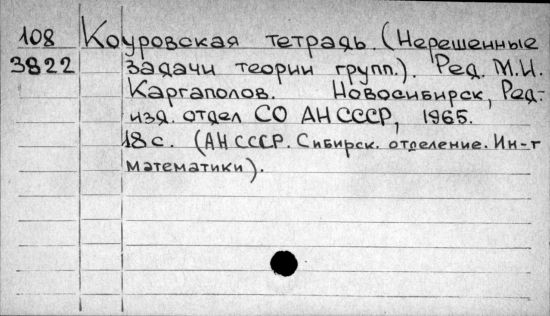 108 Коуровская тетрадь. (Нерешенные
3822 задачи теории групп.). Ред. М.И.
Каргаполов. Новосибирск, Ред.-
изд. отдел СО АН СССР, 1965.
18 с. (АН СССР. Сибирск. отделение. Ин-т
математики).